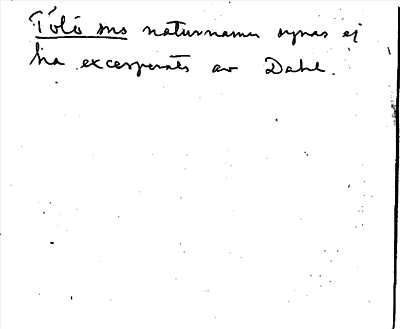 Tölö sns naturnamn synas ej
ha excerperats av Dahl.